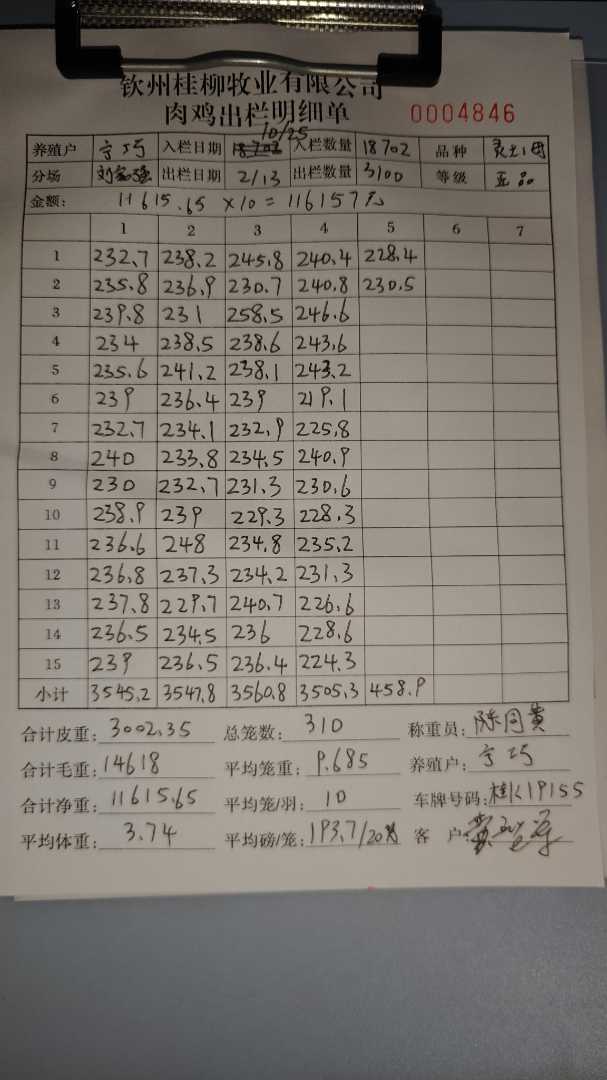 钦州桂柳牧业有限公司
肉鸡出栏明细单 0004846
10/25
养殖户 宁巧 入栏日期 入栏数量 18702 品种
分场 出栏日期 2/13 出栏数量 3100 等级 正品
金额: 11615.65 ×10 = 116157元
1 2 3 4 5 6 7
1 232.7 238.2 245.8 240.4 228.4
2 235.8 236.9 230.7 240.8 230.5
3 239.8 231 258.5 246.6
4 234 238.5 238.6 243.6
5 235.6 241.2 238.1 243.2
6 239 236.4 239 219.1
7 232.7 234.1 232.9 225.8
8 240 233.8 234.5 240.9
9 230 232.7 231.3 230.6
10 238.9 239 229.3 228.3
11 236.6 248 234.8 235.2
12 236.8 237.3 234.2 231.3
13 237.8 229.7 240.7 226.6
14 236.5 234.5 236 228.6
15 239 236.5 236.4 224.3
小计 3545.2 3547.8 3560.8 3505.3 458.9
合计皮重: 3002.35 总笼数: 310 称重员:
合计毛重: 14618 平均笼重: 9.685 养殖户: 宁巧
合计净重: 11615.65 平均笼/羽: 10 车牌号码: 桂K19155
平均体重: 3.74 平均磅/笼: 193.7/20 客户: